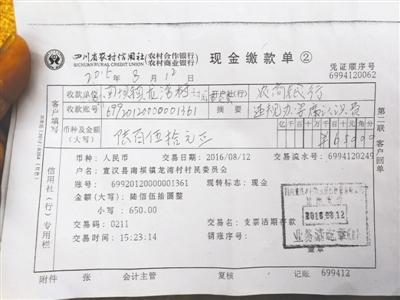 四川省农村信用社(农村合作银行)
SICHUAN RURAL CREDIT UNION(农村商业银行)
现金缴款单②
凭证顺序号
6994120062
2015 8 12
收款单位
农商银行
收款账号 699201200000001361
摘要
币种及金额(大写) 陆百伍拾元正
亿千百十万千百十元角分
¥65000
客户填写
第二联 客户回单
信用社(行)专用栏
币种：人民币 交易日期：2016/08/12 交易流水号：6994120249
户名：宣汉县南坝镇龙湾村村民委员会
账号：699201200000001361 现转标志：现金
金额(大写)：陆佰伍拾圆整
小写：650.00
交易码：0211
交易名称：支票活期存款
交易时间：15:23:14
销账序号：
2016.08.12
附件 张 会计主管 复核 记账 699412